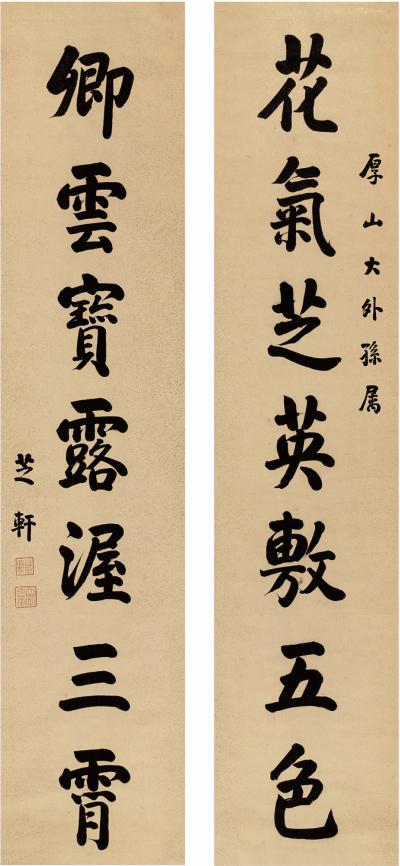 厚山大外孫属
花氣芝英敷五色
卿雲寶露渥三霄
芝軒